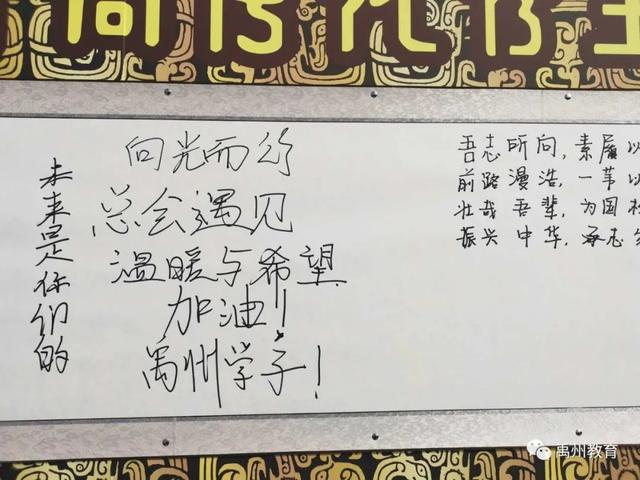 未来是你们的
向光而行
总会遇见
温暖与希望
加油！
禹州学子！
吾志所向，素履以
前路漫浩，一苇以
壮哉吾辈，为国
振兴中华，承志
禹州教育